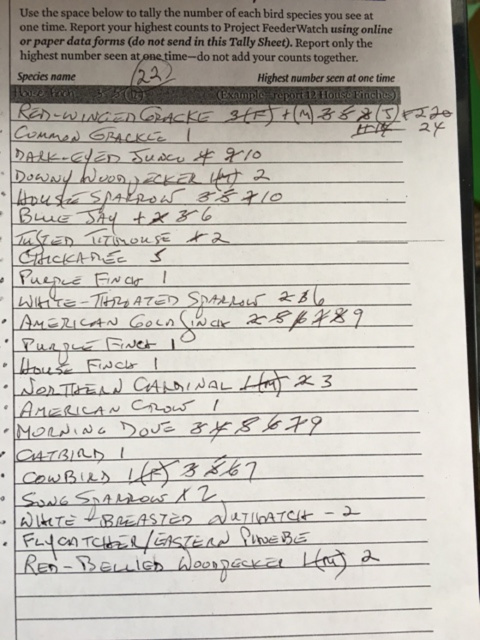 Use the space below to tally the number of each bird species you see at
one time. Report your highest counts to Project FeederWatch using online
or paper data forms (do not send in this Tally Sheet). Report only the
highest number seen at one time—do not add your counts together.
Species name (22) Highest number seen at one time
(Example: report 12 House Finches)
RED-WINGED GRACKE 3(F) + (M) 3 5 8 (5) 220
COMMON GRACKLE 1 11 14 24
DARK-EYED JUNCO 4 9 10
DOWNY WOODPECKER 1(M) 2
HOUSE SPARROW 3 5 7 10
BLUE JAY 2 3 6
TUFTED TITMOUSE 2
CHICKADEE 5
PURPLE FINCH 1
WHITE-THROATED SPARROW 2 3 6
AMERICAN GOLDFINCH 2 5 6 7 8 9
PURPLE FINCH 1
HOUSE FINCH 1
NORTHERN CARDINAL 1(M) 2 3
AMERICAN CROW 1
MORNING DOVE 3 4 5 6 7 9
CATBIRD 1
COWBIRD 1(F) 3 5 6 7
SONG SPARROW 1 2
WHITE-BREASTED NUTHATCH - 2
FLYCATCHER/EASTERN PHOEBE
RED-BELLIED WOODPECKER 1(M) 2